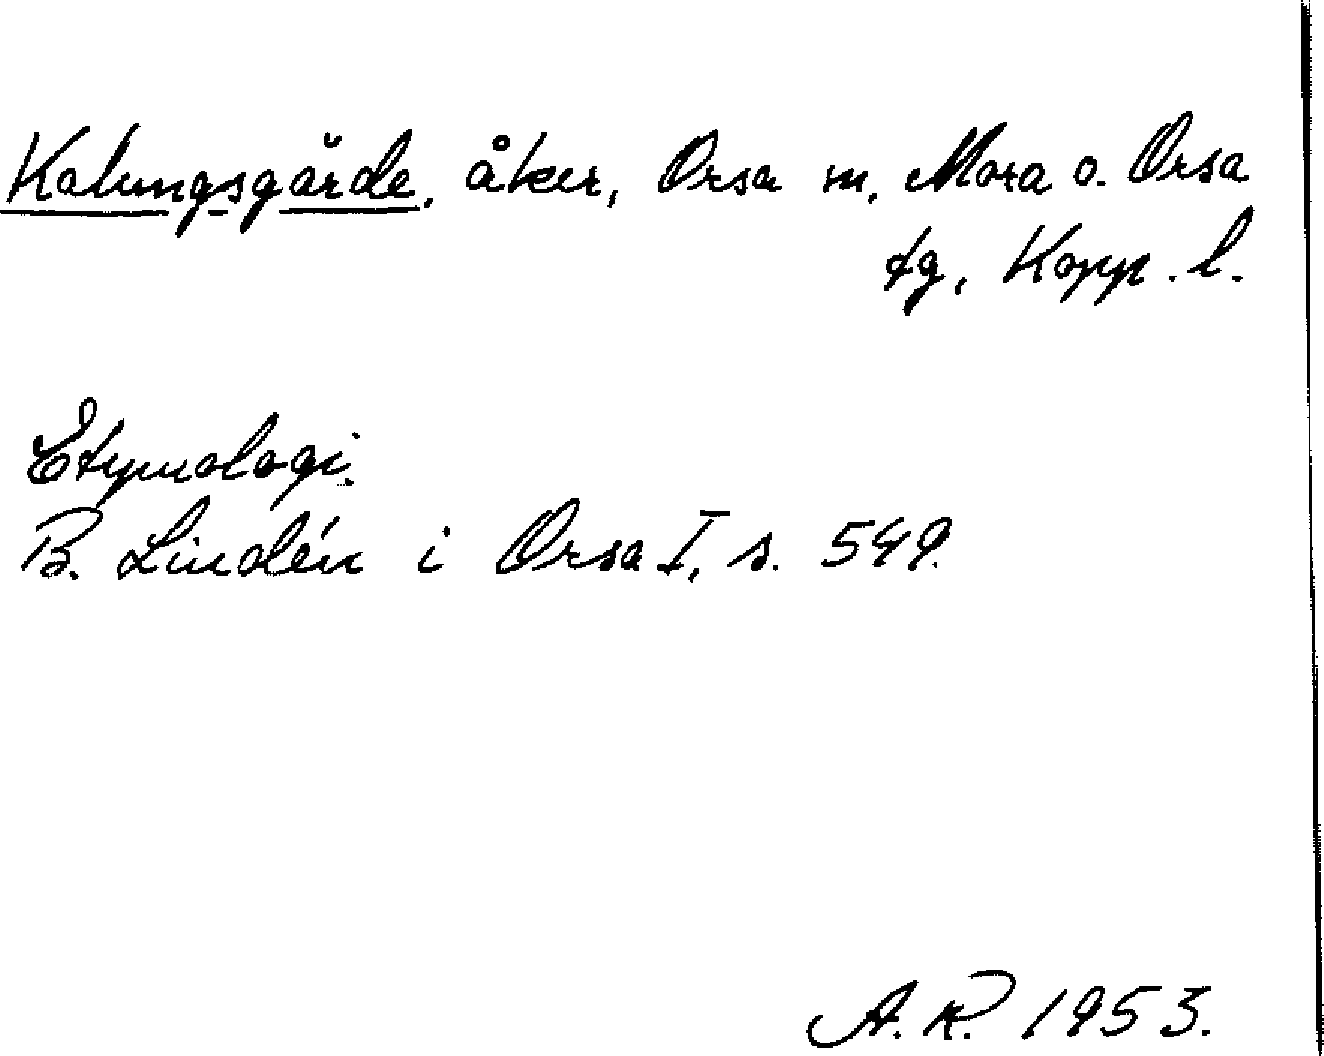 Kalungsgärde, åker, Orsa m, Mora o. Orsa
tg, Kopp. l.
Etymologi.
B. Lindén i Orsa I, s. 549.
A. R. 1953.